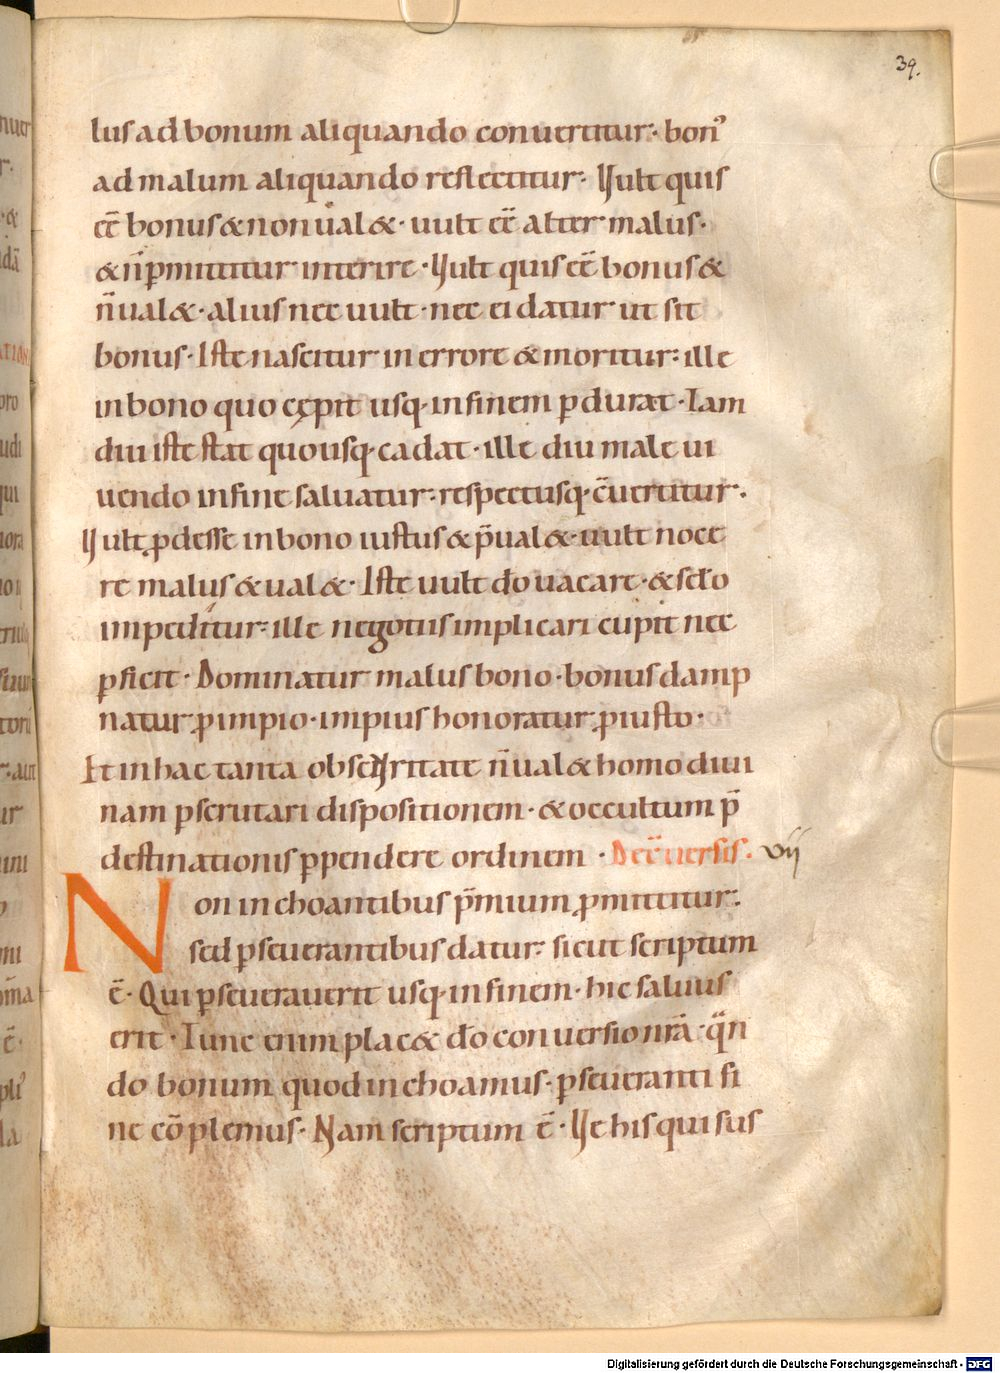 39.
lus ad bonum aliquando conuertitur· bonꝰ
ad malum aliquando reflectitur· Uult quis
eē bonus & non ual&· uult eē alter malus·
& n̄ p̱mittitur interire· Uult quis eē bonus &
n̄ ual&· alius nec uult· nec ei datur ut sit
bonus· Iste nascitur in errore & moritur· ille
in bono quo cępit usq· in finem p̱durat· Iam
diu iste stat quousq· cadat· ille diu male ui
uendo in fine saluatur· respectusq· c̄uertitur·
Uult ꝓdesse in bono iustus & p̄ual&· uult noce
re malus & ual&· Iste uult dō uacare· & sclō
impeditur· ille negotiis implicari cupit nec
ꝑficit· Dominatur malus bono· bonus damp
natur ꝓ impio· impius honoratur ꝓ iusto·
Et in hac tanta obscuritate n̄ ual& homo diui
nam ꝑscrutari dispositionem· & occultum p̄
destinationis ꝑpendere ordinem· De c̄uersis. vij
Non inchoantibus p̄mium ꝓmittitur·
sed ꝑseuerantibus datur· sicut scriptum
ē· Qui ꝑseuerauerit usq· in finem· hic saluus
erit· Tunc enim plac& dō conuersio nr̄a· q̄n
do bonum quod inchoamus· ꝑseueranti fi
ne cōplemus· Nam scriptum ē· Ve his qui sus
Digitalisierung gefördert durch die Deutsche Forschungsgemeinschaft - DFG